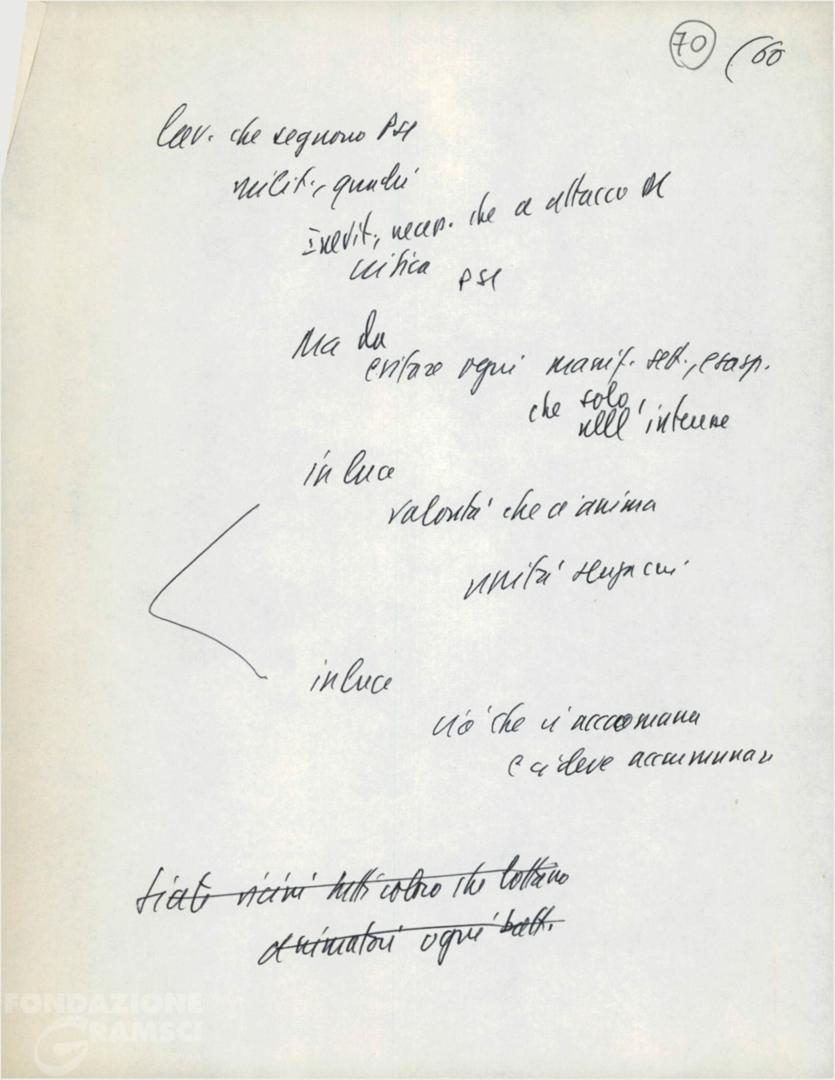 70 (60
lav. che seguono PSI
milit., quadri
Inevit., necess. che a attacco
critica PSI
Ma da
evitare ogni manif. sett., esasp.
che solo
nell'interesse
in luce
volontà che ci anima
unità
in luce
ciò che ci accomuna
e ci deve accomunare
siate vicini tutti coloro che lottano
animatori ogni batt.
FONDAZIONE
GRAMSCI